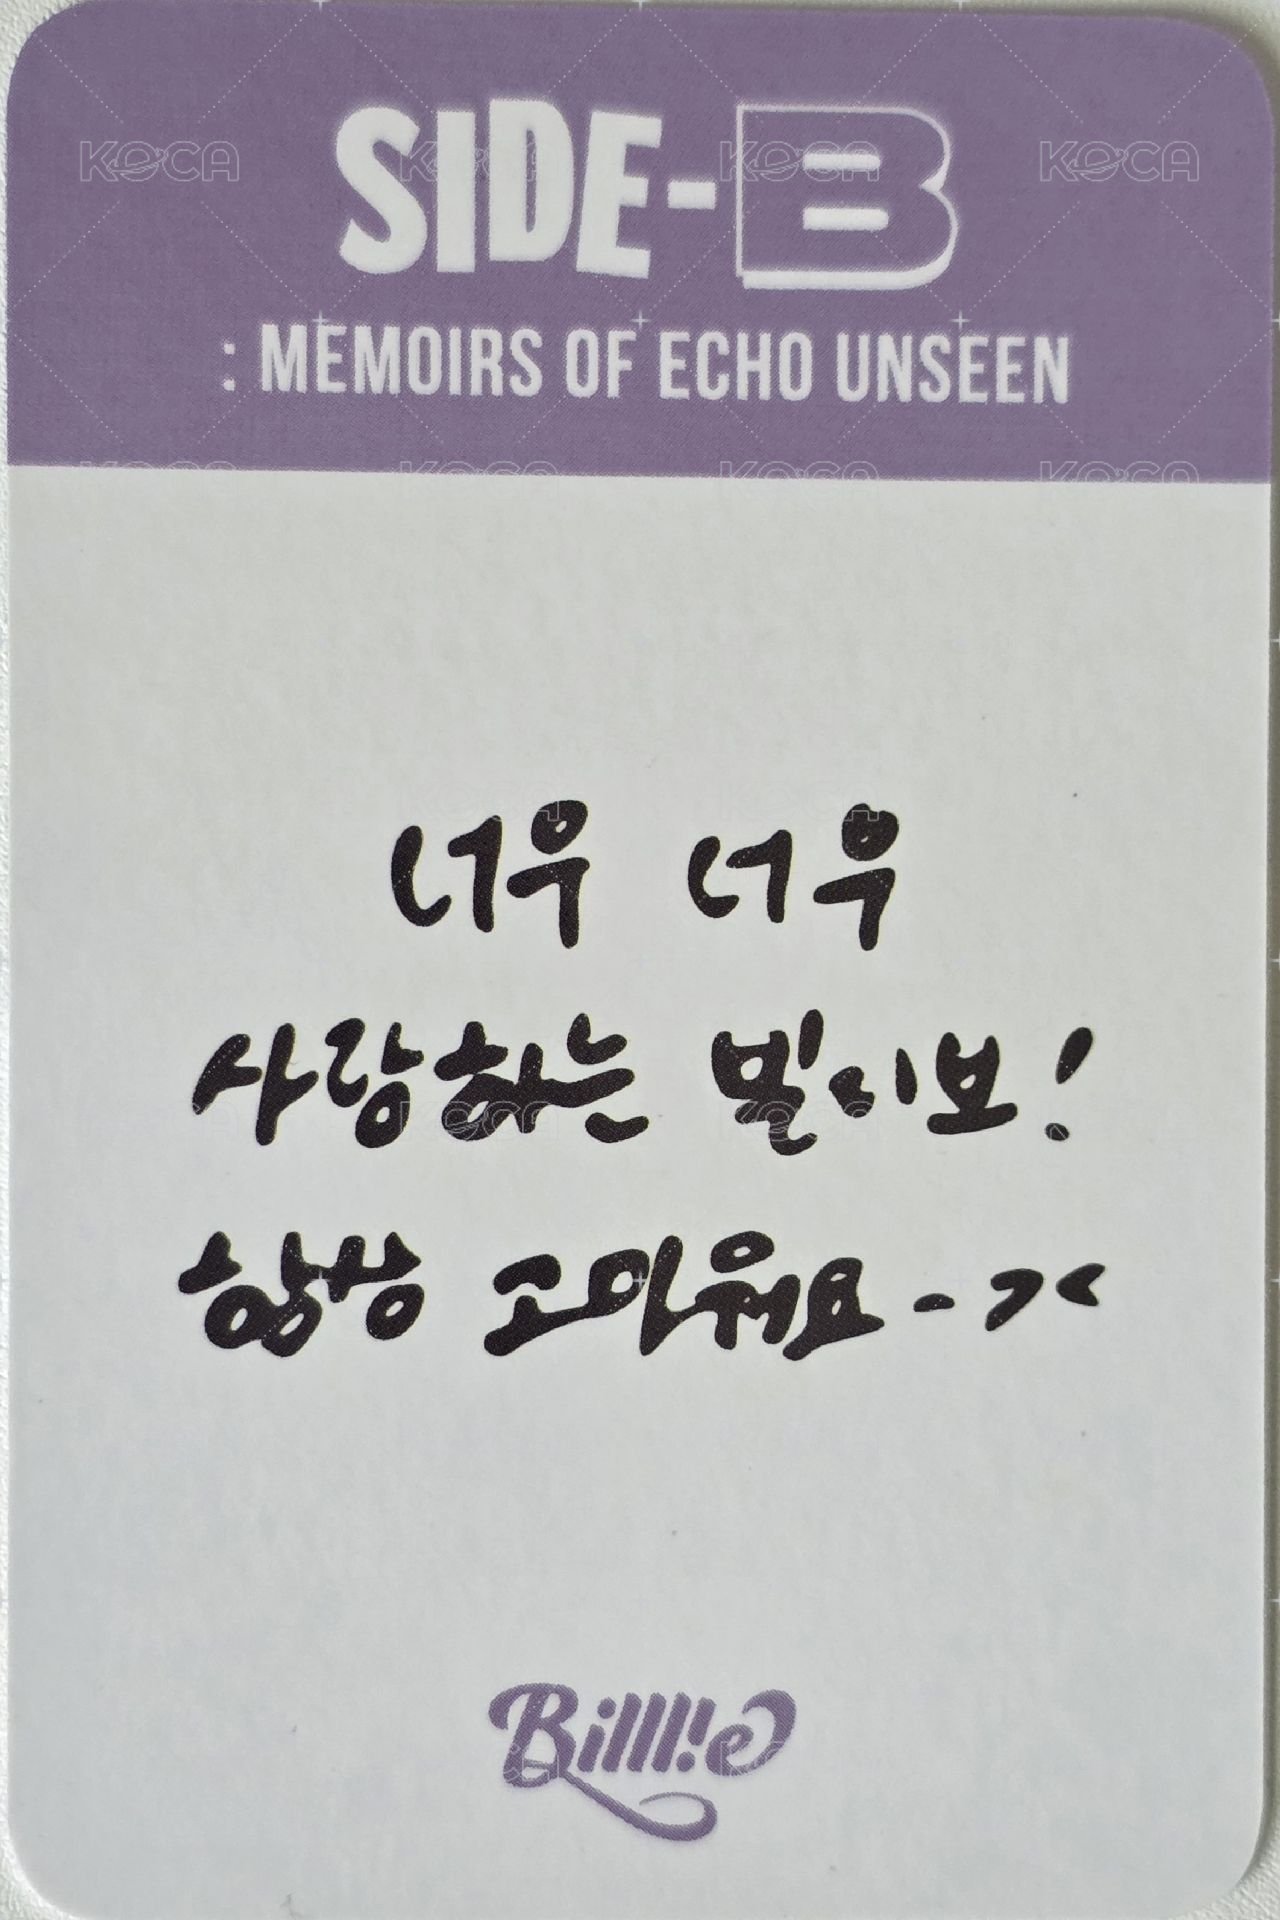 SIDE-B
: MEMOIRS OF ECHO UNSEEN
너무 너무
사랑하는 빌리브!
항상 고마워요 - ><
Billlie